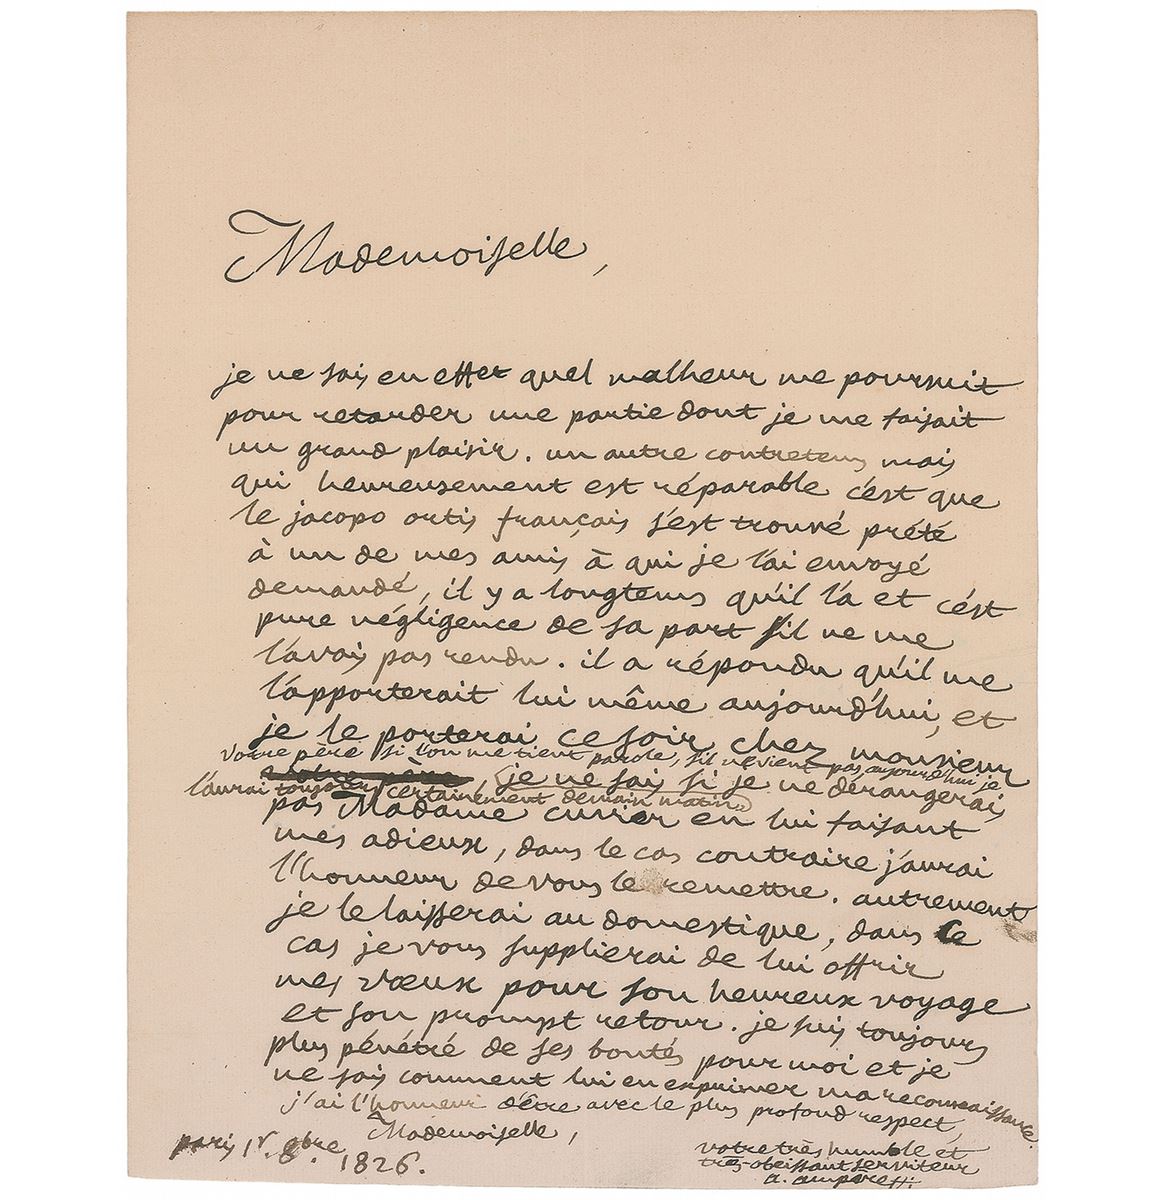 Mademoiselle,
je ne sais en effet quel malheur me poursuit
pour retarder une partie dont je me faisait
un grand plaisir. un autre contretems mais
qui heureusement est réparable c'est que
le jacopo ortis français s'est trouvé prété
à un de mes amis à qui je l'ai envoyé
demandé, il y a longtems qu'il l'a et c'est
pure négligence de sa part s'il ne me
l'avais pas rendu. il a répondu qu'il me
l'apporterait lui même aujourd'hui, et
je le porterai ce soir chez monsieur
votre père si l'on me tient parole, s'il ne vient pas aujourd'hui je
, je ne sais si je ne dérangerai
l'aurai toujours certainement demain matin
pas Madame cuvier en lui faisant
mes adieux, dans le cas contraire j'aurai
l'honneur de vous le remettre. autrement
je le laisserai au domestique, dans ce
cas je vous supplierai de lui offrir
mes vœux pour son heureux voyage
et son prompt retour. je suis toujours
plus pénétré de ses bontés pour moi et je
ne sais comment lui en exprimer ma reconnaissance.
j'ai l'honneur d'être avec le plus profond respect,
Mademoiselle,
paris 1r. 8bre. 1826.
votre très humble et
très-obéissant serviteur
a. ampère